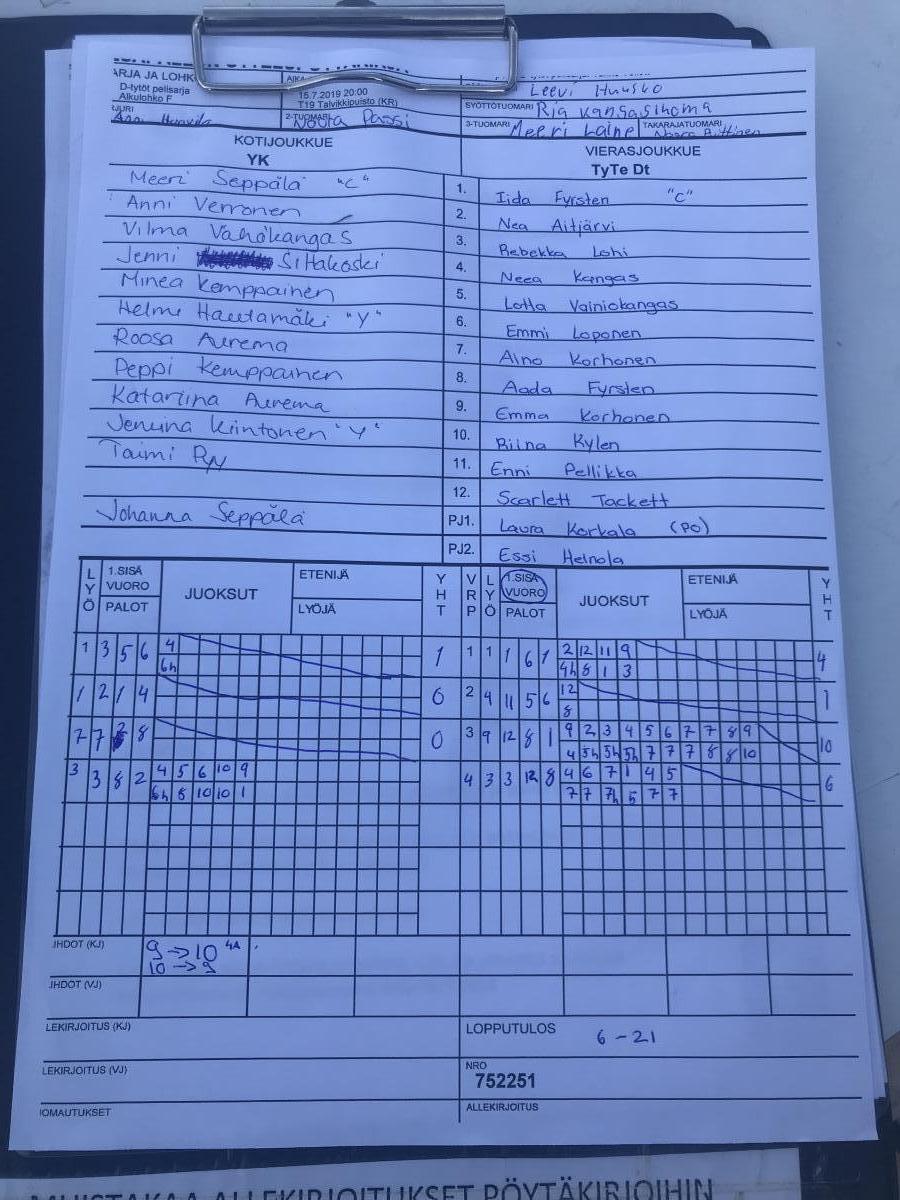 ARJA JA LOHK
D-tytöt pelisarja
Alkulohko F
15.7.2019 20:00
T19 Talvikkipuisto (KR)
Leevi Huusko
SYÖTTÖTUOMARI Ria Kangasihoma
2-TUOMARI Noora Passi
3-TUOMARI Meeri Laine TAKARAJATUOMARI
KOTIJOUKKUE VIERASJOUKKUE
YK TyTe Dt
Meeri Seppälä "C" 1. Iida Fyrsten "C"
Anni Verronen 2. Nea Aitjärvi
Vilma Vahökangas 3. Rebekka Lohi
Jenni Siltakoski 4. Neea Kangas
Minea Kemppainen 5. Lotta Vainiokangas
Helmi Hautamäki "Y" 6. Emmi Loponen
Roosa Aurema 7. Aino Korhonen
Peppi Kemppainen 8. Aada Fyrsten
Katariina Aurema 9. Emma Korhonen
Jenuina Kiintonen "Y" 10. Riina Kylen
Taimi 11. Enni Pellikka
12. Scarlett Tackett
Johanna Seppälä PJ1. Laura Korkala (PO)
PJ2. Essi Heinola
LYÖ 1.SISÄ VUORO PALOT JUOKSUT ETENIJÄ LYÖJÄ YHT VRP LYÖ 1.SISÄ VUORO PALOT JUOKSUT ETENIJÄ LYÖJÄ YHT
1 3 5 6 4 1 1 1 1 6 1 2 12 11 9 4
6h 4h 8 1 3
1 2 1 4 0 2 9 11 5 6 12 1
8
7 7 8 0 3 9 12 8 1 9 2 3 4 5 6 7 7 8 9 10
4 5h 5h 5h 7 7 7 8 8 10
3 3 8 2 4 5 6 10 9 4 3 3 12 8 4 6 7 1 4 5 6
6h 8 10 10 1 7 7 7h 5 7 7
IHDOT (KJ) 9→10 4A
10→9
IHDOT (VJ)
LEKIRJOITUS (KJ) LOPPUTULOS 6-21
LEKIRJOITUS (VJ) NRO
752251
IOMAUTUKSET ALLEKIRJOITUS
MUISTAKAA ALLEKIRJOITUKSET PÖYTÄKIRJOIHIN